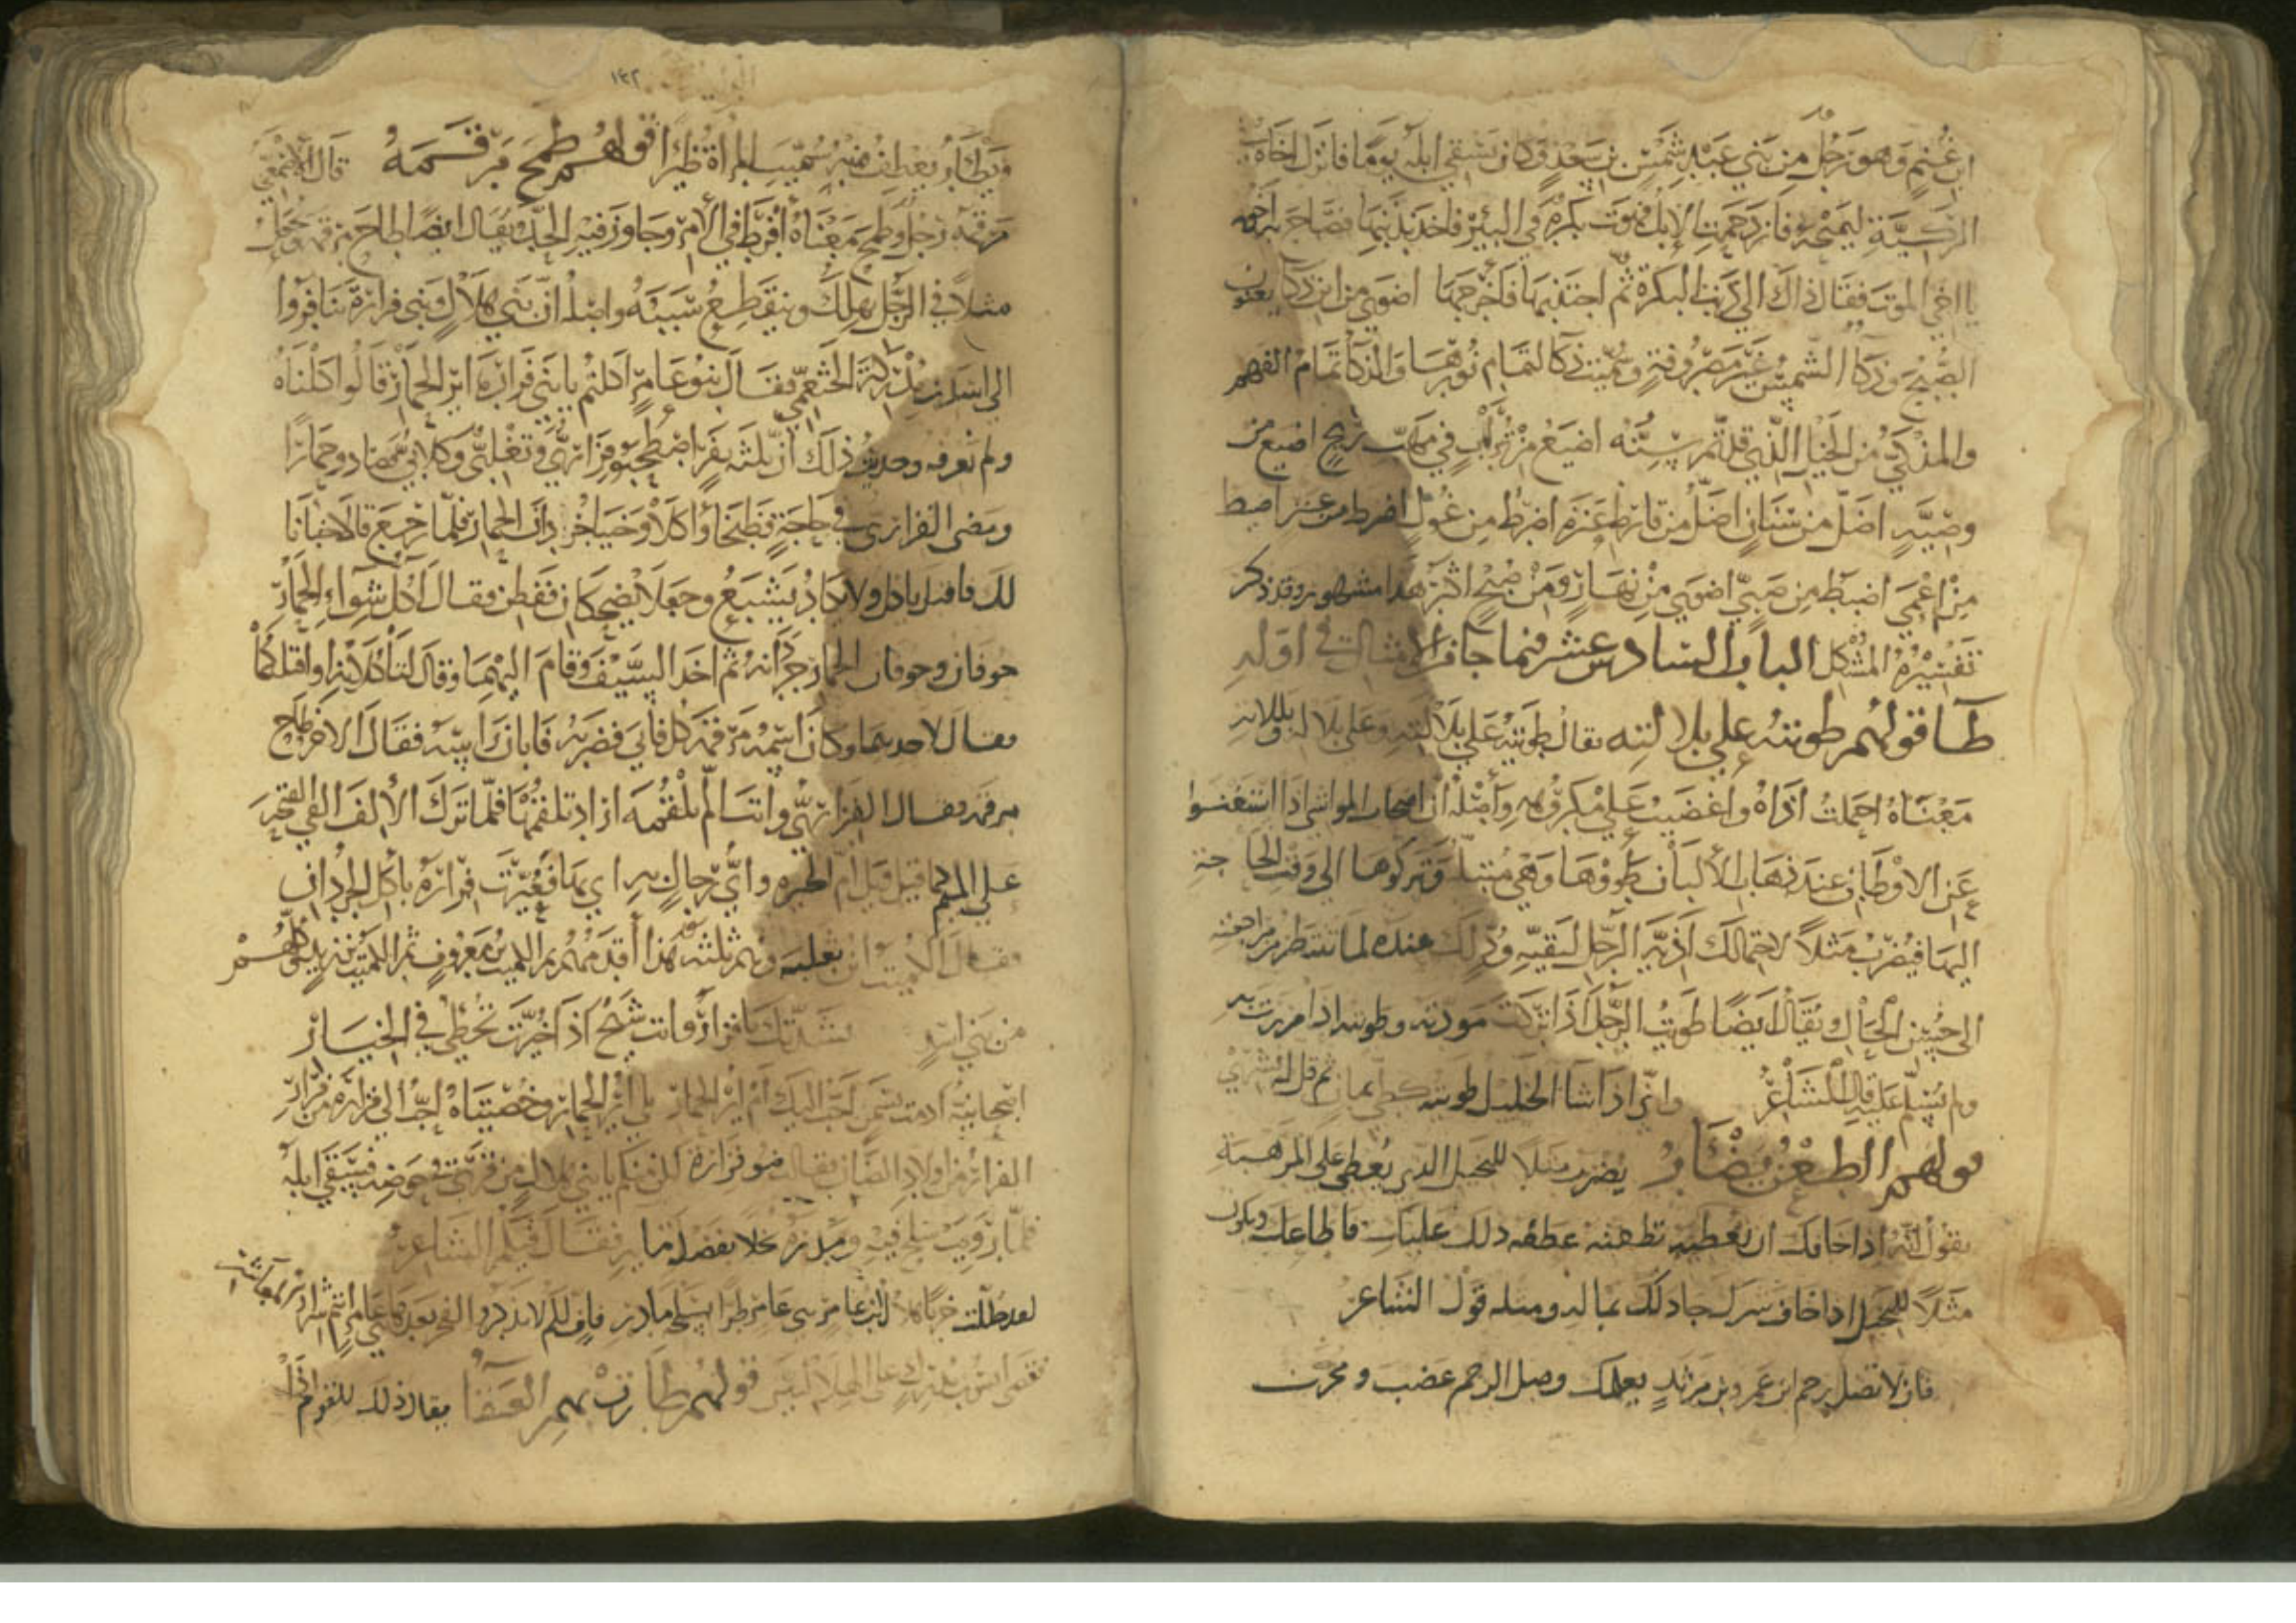 ابن غُنم وهو رجل من بني عبد شمس بن سعد وكان يسقي ابله يوما فانزل اخاه في
الركية ليميحه فازدحمت الإبل فهوت بكرة في البئر فاخذ بذنبها فصاح به اخوه
يا اخي الموت فقال ذاك الى ذنب البكرة ثم اجتذبها فاخرجها اضوى من ابن ذكاء يعنون
الصبح وذكاء الشمس غير مصروفة وسميت ذكا لتمام نورها والذكا تمام الفهم
والمذكي من الخيل الذي قد تم سنه اضيع من تراب في مهب ريح اضيع من
وصية اضل من سنان اضل من قارظ عنزة اضرط من غول اضرط من عنز اضبط
من اعمى اضبط من صبي اضوى من نهار ومن صبح اكثر هذا مشهور وقد ذكر
تفسيره المشكل الباب السادس عشر فيما جا من الامثال في اوله
طا قولهم طويته على بلالته يقال طويته على بلالته وعلى بللته
معناه احتملت اذاه واغضيت على مكروهه واصله ان اصحاب المواشي اذا استغنوا
عن الاوطاب عند ذهاب الألبان طووها وهي مبتلة وتركوها الى وقت الحاجة
اليها فيضرب مثلا لاحتمالك اذية الرجل لبقية ود لك عنده لما تنتظر من مراجعته
الى حسن الحال ويقال ايضا طويت الرجل اذا تركت مودته وطويته اذا مررت به
ولم تسلم عليه قال الشاعر واني اذا شا الخليل طويته كطي يمان ثم قل له نشري
قولهم الطعن يضار يضرب مثلا للبخيل الذي يعطي على الرهبة
يقول انه اذا خافك ان يعطيه تطعنه عطفه ذلك عليك فاطاعك ويكون
مثلا للبخيل اذا خاف شرك جاد لك بماله ومثله قول الشاعر
فان لا تصل رحم ابن عمرو بن مرثد يعلمك وصل الرحم عضب ومحرب
١٤٢
قولهم طمح مرقمه قال الاصمعي
مرقمه رجل وطمح معناه أفرط في الامر وجاوز فيه الحد ويقال ايضا طاح مرقمه
مثلا في الرجل يهلك وينقطع سببه واصله ان بني هلال وبني فزارة تنافروا
الى انس بن مدركة الخثعمي فقال بنو عامر اكلتم يا بني فزارة اير الحمار قالوا اكلناه
ولم نعرفه وحديث ذلك أن ثلثة نفر اصطحبوا فزاري وتغلبي وكلابي فصادوا حمارا
ومضى الفزاري في حاجة فطبخا واكلا وخبيا جردان الحمار فلما رجع قالا خبانا
لك فاقبل ياكل ولا يكاد يشبع وجعلا يضحكان ففطن فقال أكل شواء الحمار
جوفان وجوفان الحمار جردانه ثم اخذ السيف وقام اليهما وقال لتاكلانه او اقتلكما
فقال لاحدهما وكان اسمه مرقمه كل فابى فضربه فابان راسه فقال الاخر طاح
مرقمه فقال الفزاري وانت ان لم تلقمه اراد تلقمها فلما ترك الألف القى الفتحة
على الميم كما قيل ويل ام الحيره واي رجال به اي بها فعيرت فزارة بأكل الجردان
فقال الكميت ابن ثعلبه وهم ثلثة هذا أقدمهم ثم الكميت بن معروف ثم الكميت بن زيد وكلهم
من بني اسد نشدتك يا فزار وانت شيخ اذا خيرت تخطي في الخيار
اصيحانية ادمت بسمن احب اليك أم اير الحمار بلى اير الحمار وخصيتاه احب الى فزارة من فزار
الفزار من اولاد الضان فقالت بنو فزارة لكن منكم يا بني هلال من قرى في حوضه فسقى ابله
فلما رويت سلح فيه ومدره بخلا بفضل ما به فقال فيهم الشاعر
لقد جللت خزيا هلال بن عامر بني عامر طرا بسلحة مادر فاف لكم لا تذكروا الفخر بعدها بني عامر انتم شرار المعاشر
فقضى انس بن مدركة على الهلاليين قولهم طارت بهم العنقا يقال ذلك للقوم اذا